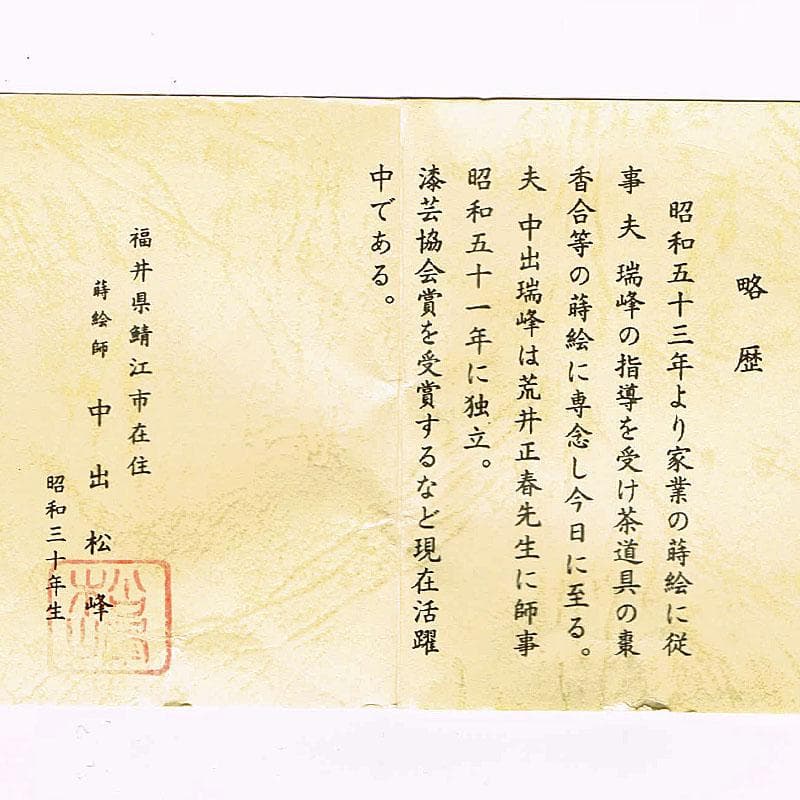 略歴
昭和五十三年より家業の蒔絵に従
事 夫 瑞峰の指導を受け茶道具の棗
香合等の蒔絵に専念し今日に至る。
夫 中出瑞峰は荒井正春先生に師事
昭和五十一年に独立。
漆芸協会賞を受賞するなど現在活躍
中である。
福井県鯖江市在住
蒔絵師 中出松峰
昭和三十年生